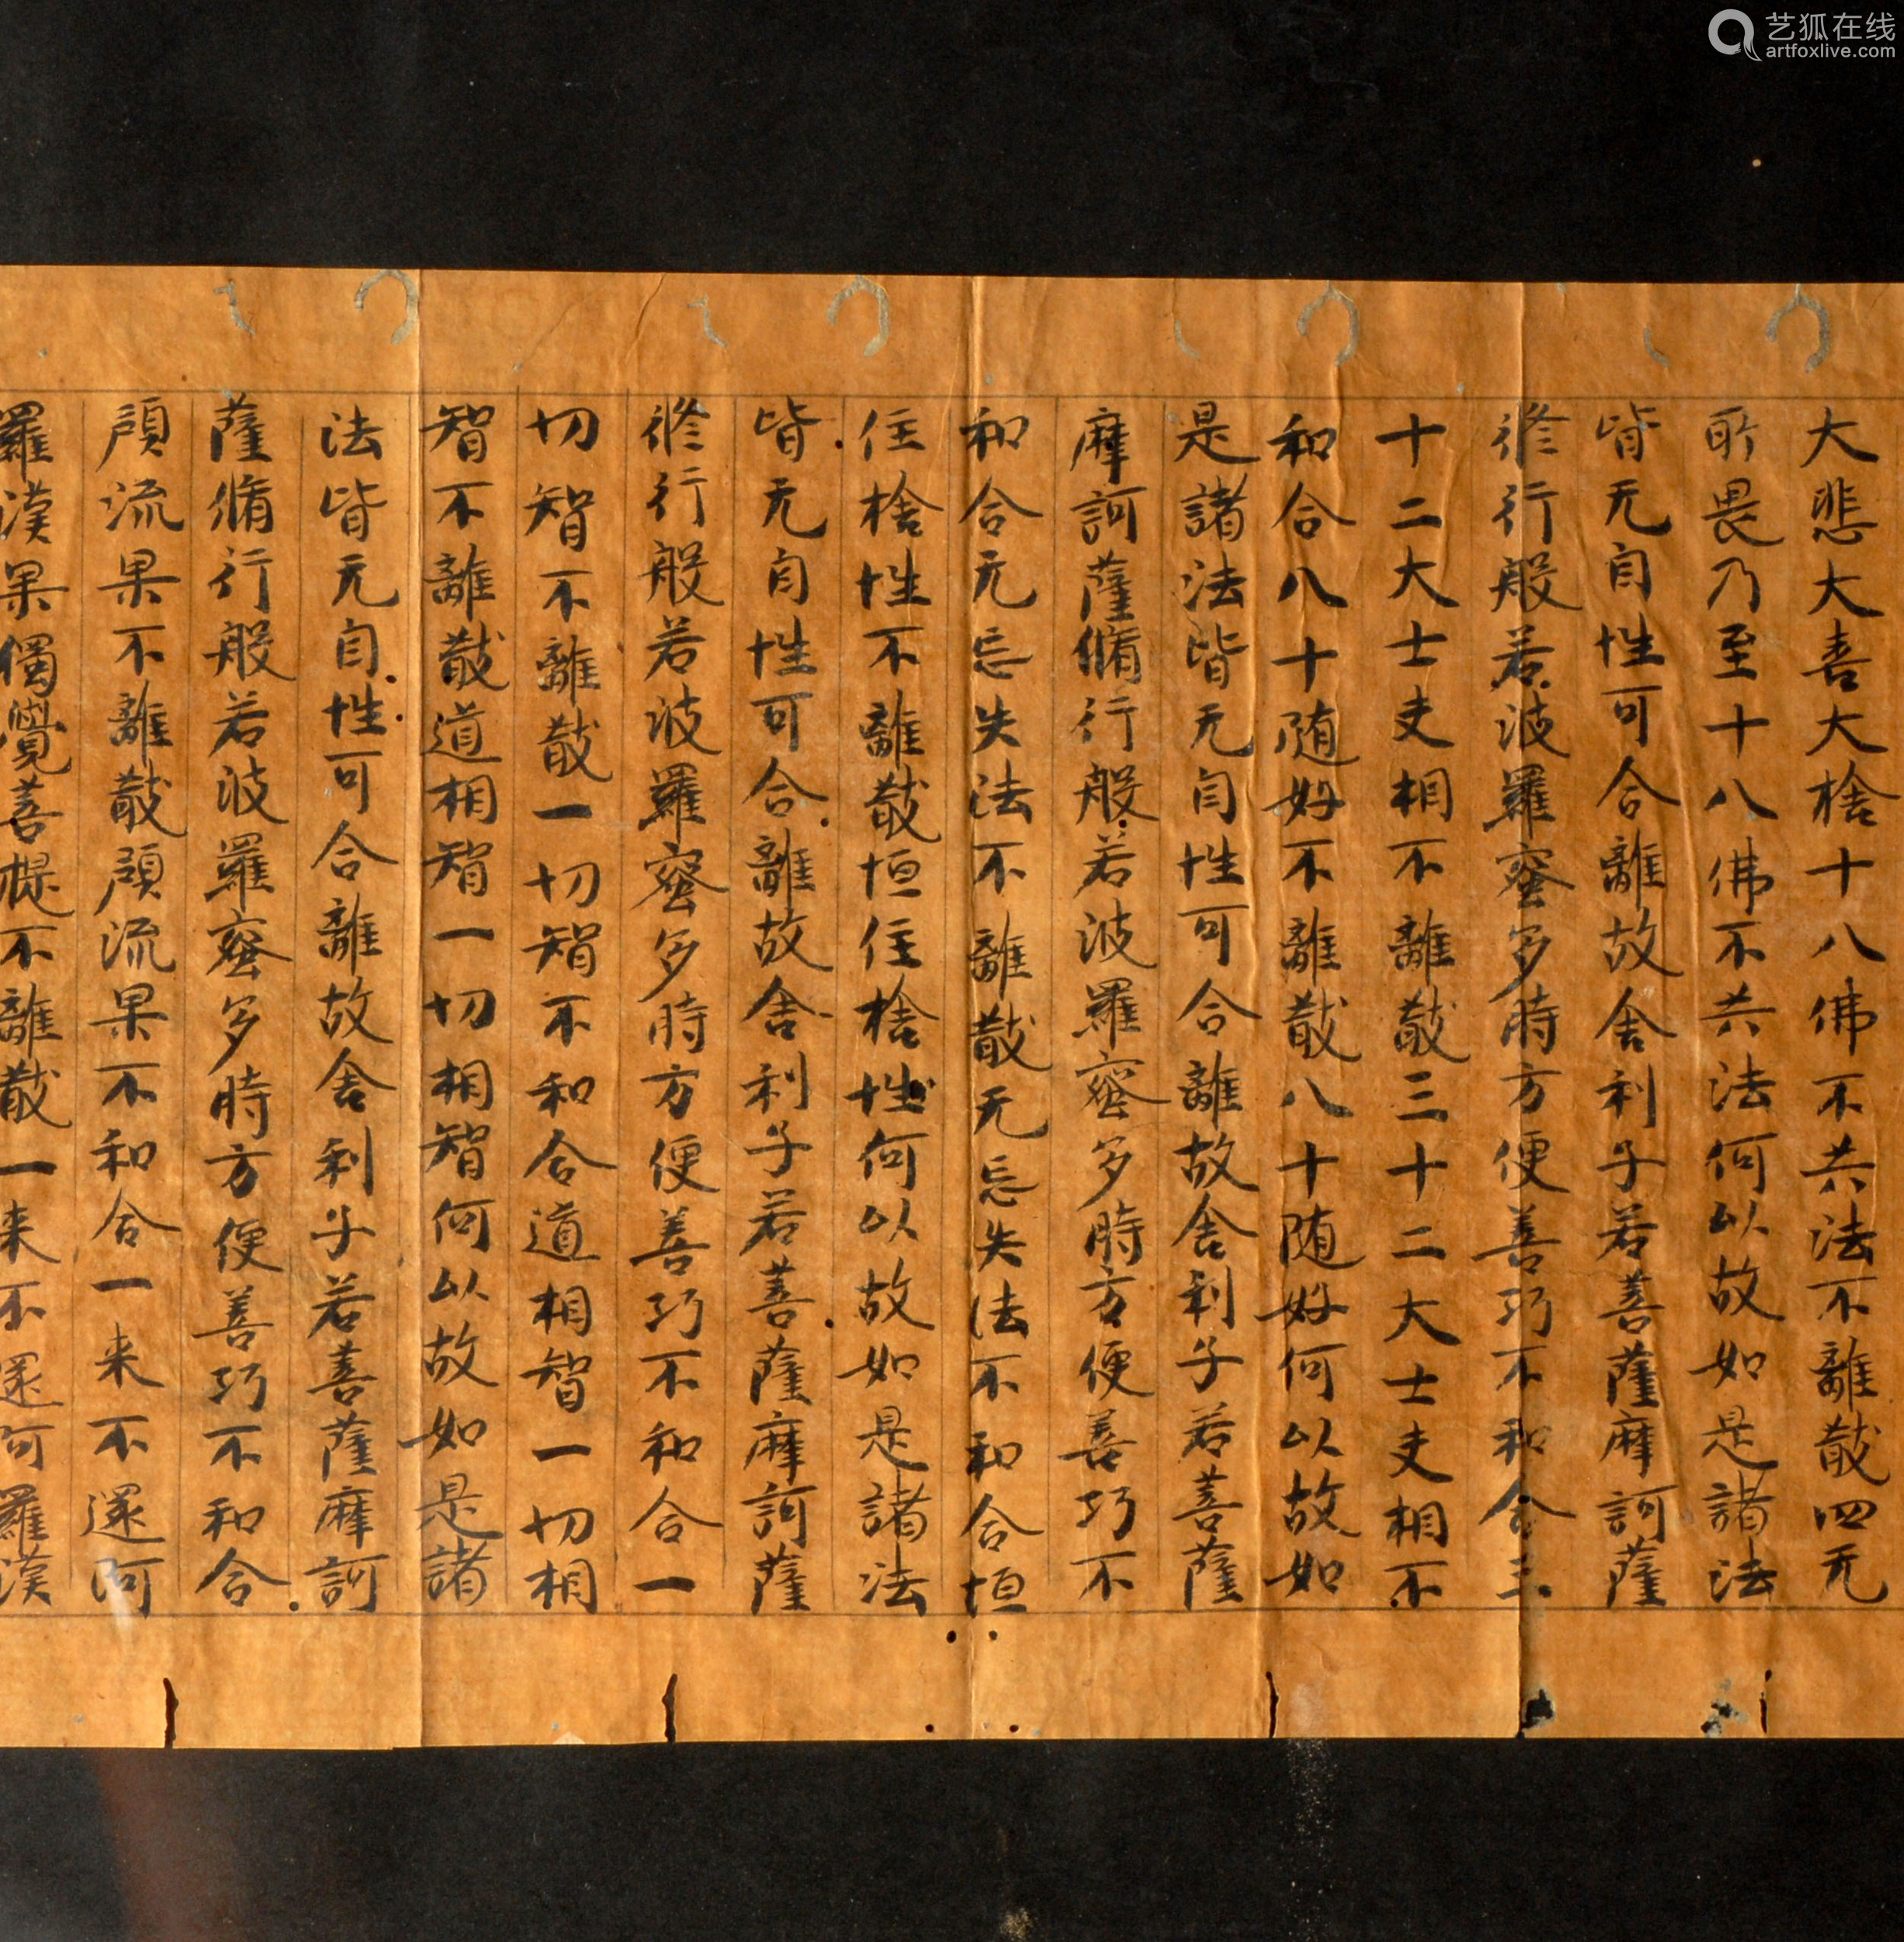 艺狐在线
artfoxlive.com
大悲大喜大捨十八佛不共法不離散四无
所畏乃至十八佛不共法何以故如是諸法
皆无自性可合離故舍利子若菩薩摩訶薩
修行般若波羅蜜多時方便善巧不和合三
十二大士夫相不離散三十二大士夫相不
和合八十随好不離散八十随好何以故如
是諸法皆无自性可合離故舍利子若菩薩
摩訶薩脩行般若波羅蜜多時方便善巧不
和合无忘失法不離散无忘失法不和合恒
住捨性不離散恒住捨性何以故如是諸法
皆无自性可合離故舍利子若菩薩摩訶薩
修行般若波羅蜜多時方便善巧不和合一
切智不離散一切智不和合道相智一切相
智不離散道相智一切相智何以故如是諸
法皆无自性可合離故舍利子若菩薩摩訶
薩脩行般若波羅蜜多時方便善巧不和合
預流果不離散預流果不和合一来不還阿
羅漢果獨覺菩提不離散一来不還阿羅漢